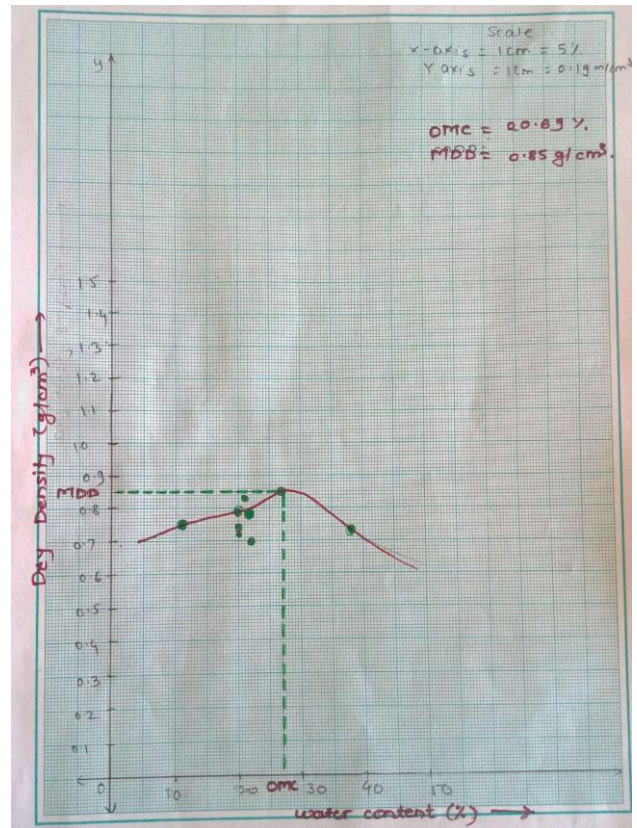 Scale
x-axis = 1cm = 5%
Y axis = 1cm = 0.1gm/cm³
y
OMC = 20.89 %.
MDD = 0.85 g/cm³.
1.5
1.4
1.3
1.2
1.1
1.0
0.9
MDD
0.8
0.7
0.6
0.5
0.4
0.3
0.2
0.1
Dry Density (g/cm³)
0 10 20 OMC 30 40 50
water content (%)